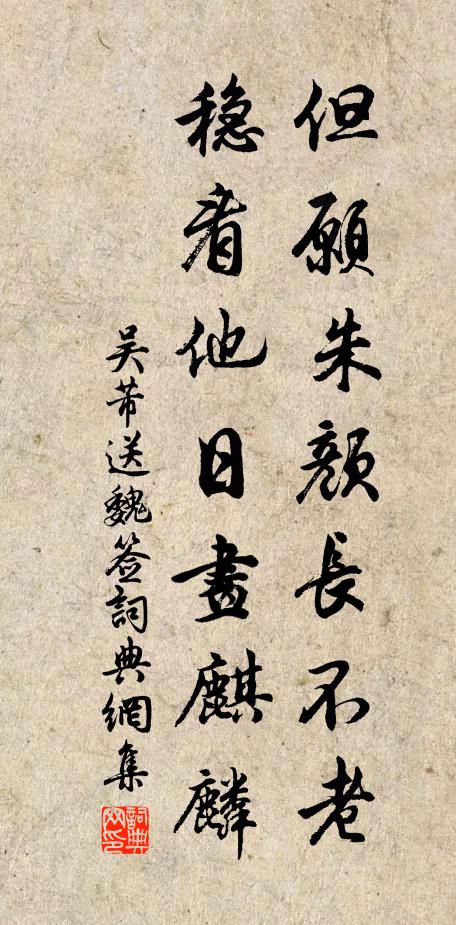 但願朱顔長不老
穩看他日畫麒麟
吴芾送魏签詞典網集
詞典网印